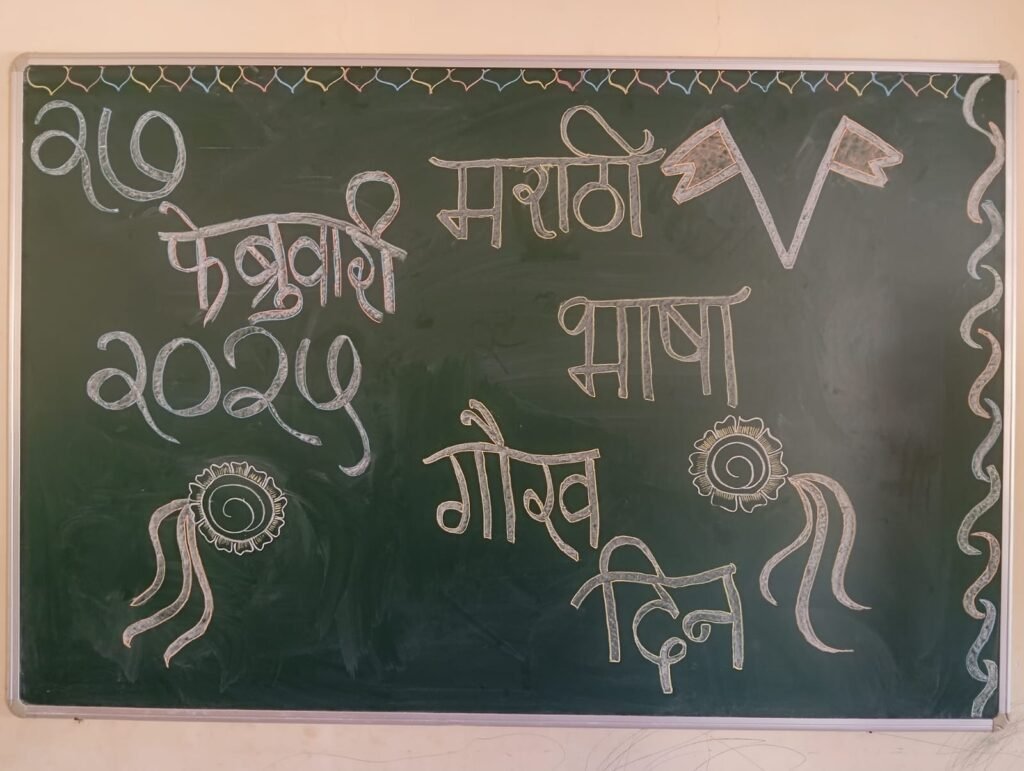 २७
फेब्रुवारी
२०२५
मराठी
भाषा
गौरव
दिन